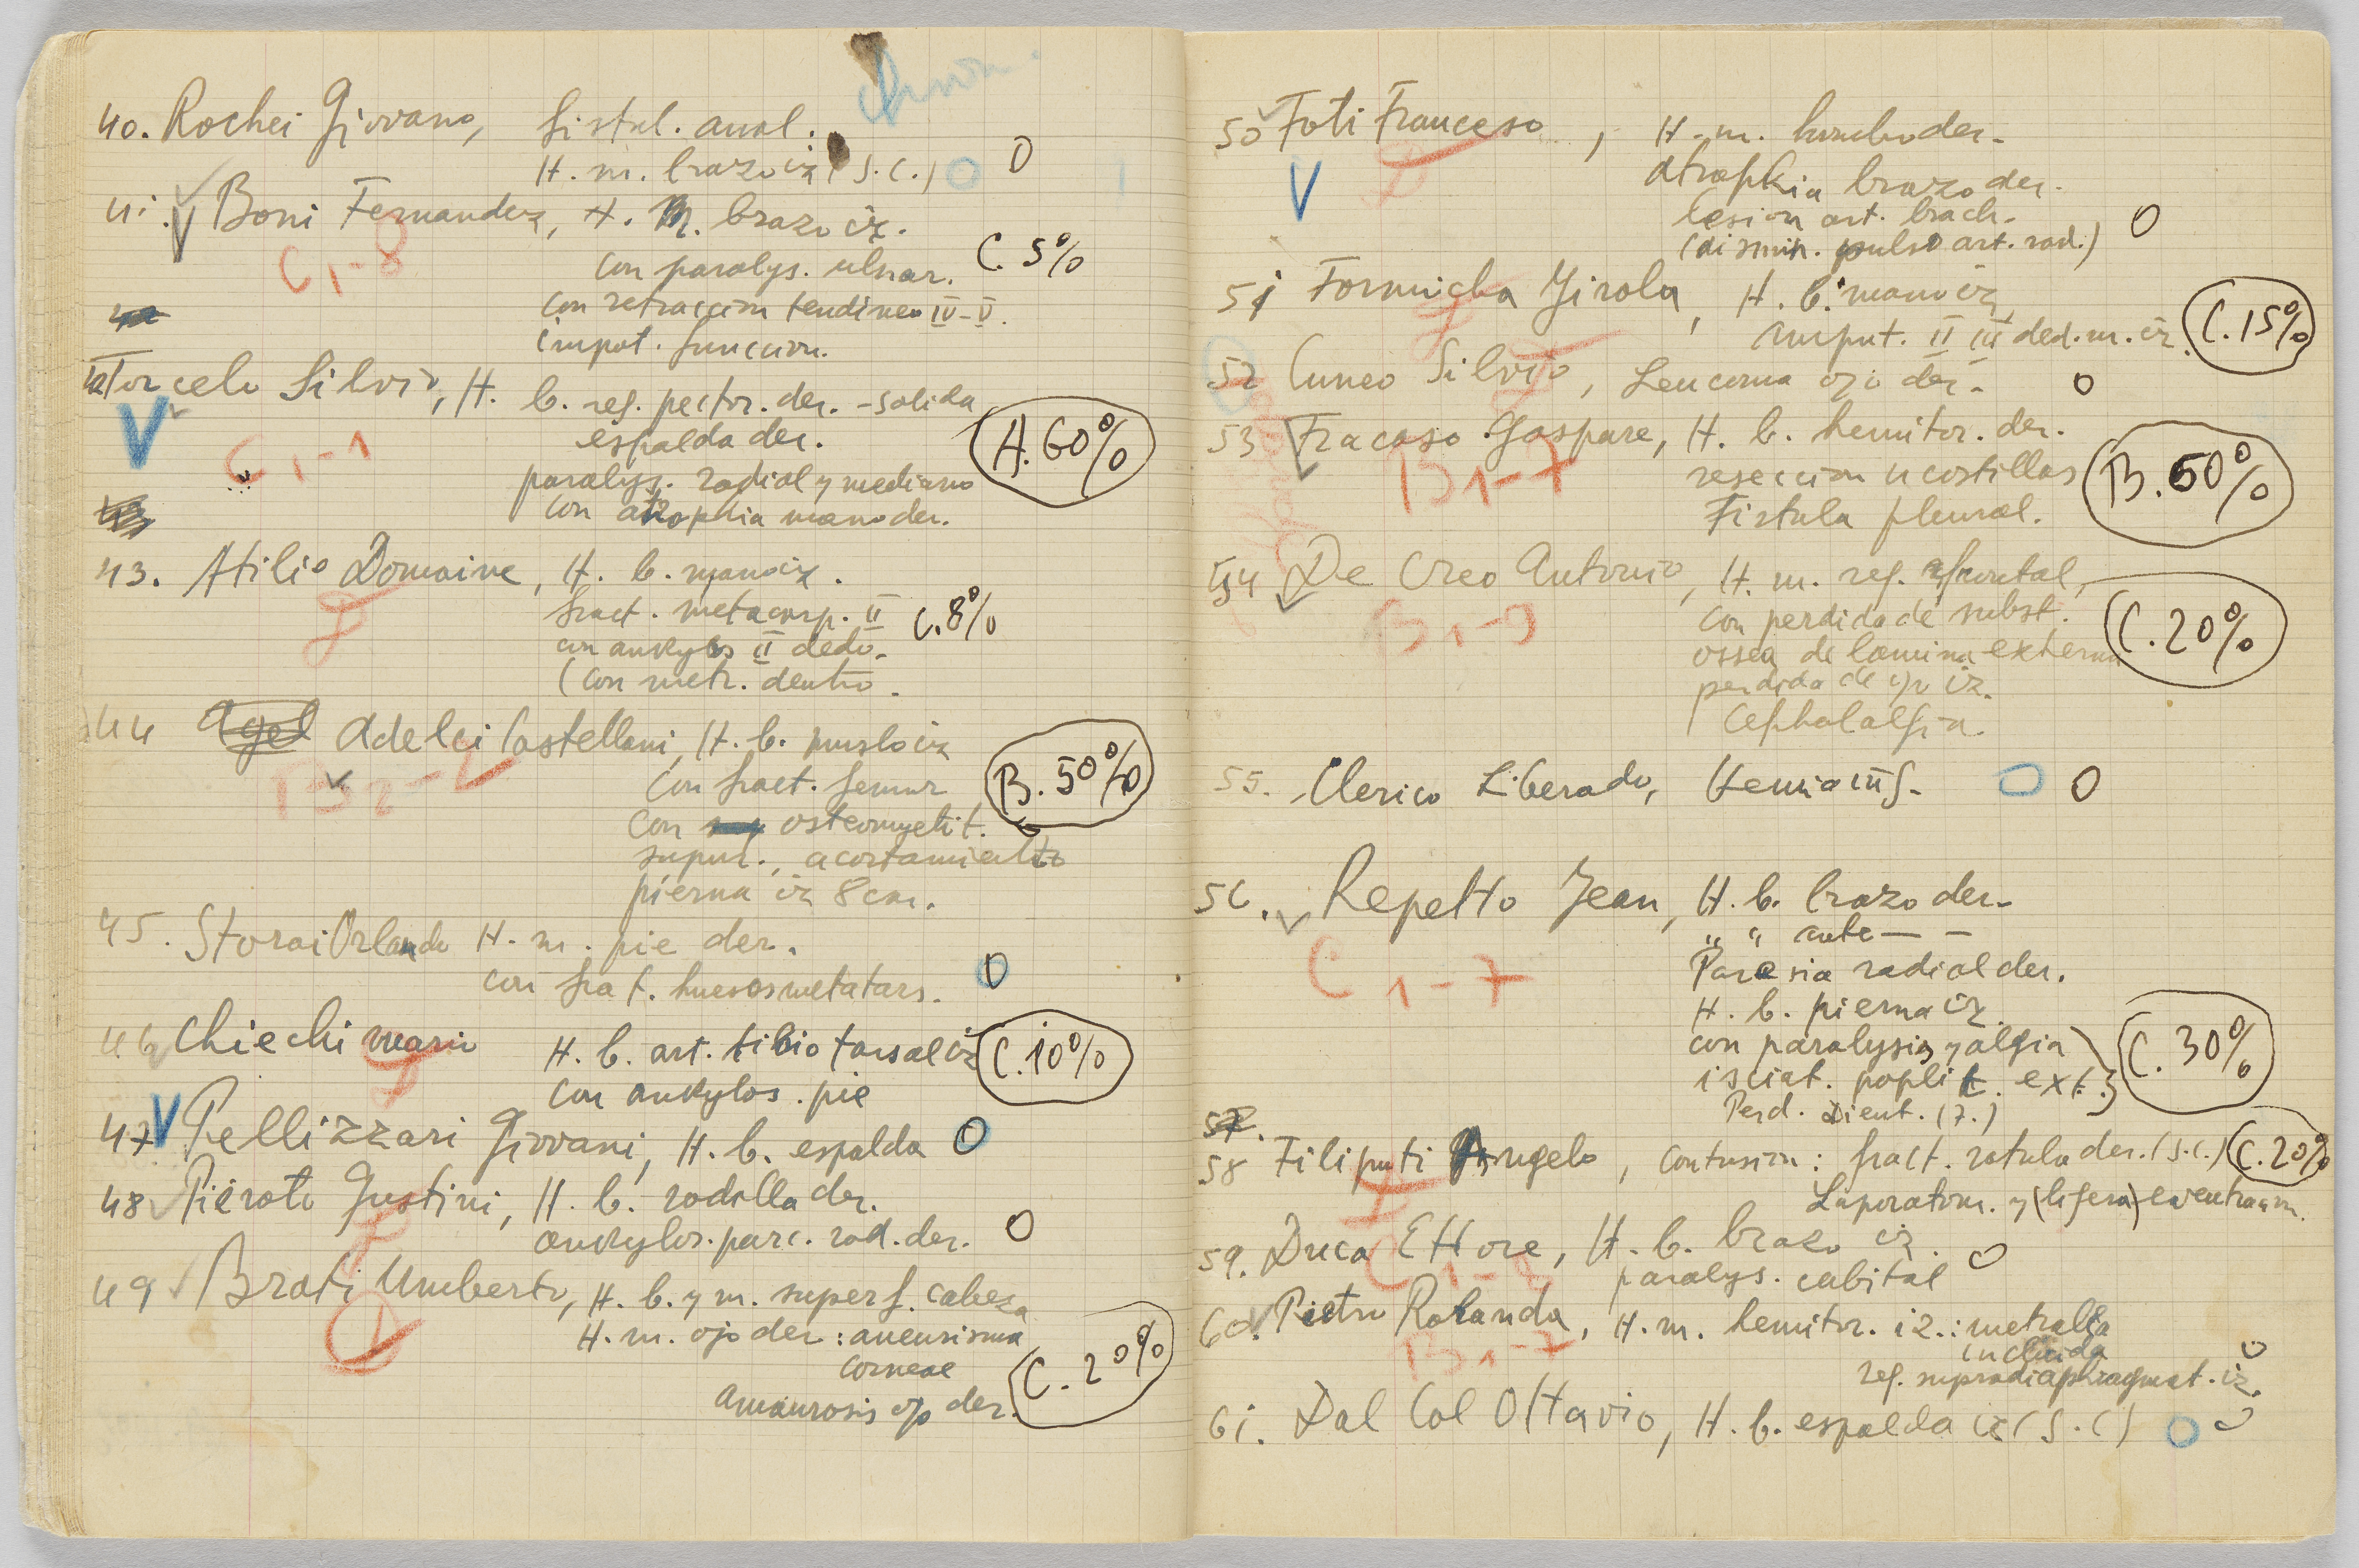 40. Rochei Giovano, fistul. anal.
H. m. brazo iz (S.C.) 0
41. V Boni Fernandez, H. m. brazo iz.
C 1-8
con paralys. ulnar. C. 5%
con retraccion tendineo IV-V.
impot. funccion.
42 Torcelo Silvio, H. b. reg. pector. der. - salida
V
espalda der. A. 60%
C 1-1
paralys. radial y mediano
con atrophia mano der.
43. Atilio Domaine, H. b. mano iz.
fract. metacarp. II C. 8%
con ankylos II dedo.
(con metr. dentro.
44 Agel Adelei Castellani, H. b. muslo iz
B 2-2
con fract. femur B. 50%
con osteomyelit.
supur., acortamiento
pierna iz 8 cm.
45. Storai Orlando H. m. pie der.
con frat. huesos metatars. 0
46 Chiechi mario H. b. art. tibio tarsal iz C. 10%
con ankylos. pie
47 V Pellizzari Giovani, H. b. espalda 0
48 Pieroto Gustini, H. b. rodilla der.
ankylos. parc. rod. der. 0
49 Brati Umberto, H. b. y m. superf. cabeza
H. m. ojo der: aneurisma
corneae
Amaurosis ojo der. C. 20%
50 Foti Franceso, H. m. hombro der.
V
atrophia brazo der.
lesion art. brach.
(dismin. pulso art. rad.) 0
51 Formicha Girola, H. b. mano iz
amput. II III ded. m. iz. C. 15%
52 Cuneo Silvio, Leucoma ojo der. 0
53 Fracaso Gaspare, H. b. hemitor. der.
B 1-7
reseccion 4 costillas B. 60%
Fistula pleural.
54 De Creo Antonio, H. m. reg. frontal,
B 1-9
con perdida de subst.
ossea de lamina externa C. 20%
perdida de ojo iz.
Cephalalgia.
55. Clerico Liberado, Hernia ing. 0
56. Repetto Jean, H. b. brazo der.
" " ante — —
C 1-7
Paresia radial der.
H. b. pierna iz.
con paralysis y algia C. 30%
isciat. poplit. ext.
Perd. dient. (7.)
57.
58 Filiputi Angelo, contusion: fract. rotula der. (S.C.) C. 20%
Laporatom. y (ligera) eventracion.
59. Duca Ettore, H. b. brazo iz.
paralys. cubital 0
60. Pietro Rolanda, H. m. hemitor. iz.: metralla
B 1-7
incluida
reg. supradiaphragmat. iz. 0
61. Dal Col Ottavio, H. b. espalda iz (S.C) 0